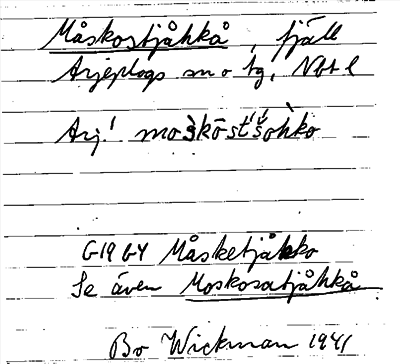 Måskostjåhkå, fjäll
Arjeplogs sn o tg, Nbt l
Arj! moskōst́šohko
G19 GY Måsketjåkko
Se även Moskosatjåhkå
Bo Wickman 1941